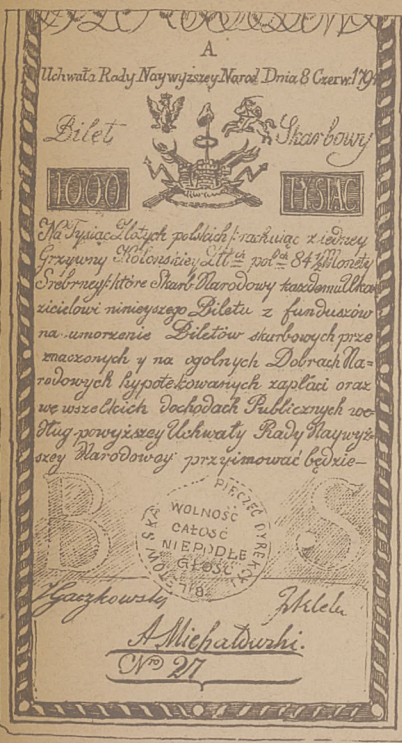 A
Uchwała Rady Naywyższey Narod. Dnia 8 Czerw: 1794
Bilet Skarbowy
1000 TYSIĄC
Na Tysiąc Złotych polskich rachuiąc z iedney
Grzywny Kolońskiey Zł:tt ch pol:ch 84 1/2 Monety
Srebrney które Skarb Narodowy każdemu Uka
zicielowi ninieyszego Biletu z funduszów
na umorzenie Biletów skarbowych prze
znaczonych y na ogolnych Dobrach Na=
rodowych hypotekowanych zapłaci oraz
we wszelkich dochodach Publicznych we
dług powyższey Uchwały Rady Naywyż=
szey Narodowey przyimować będzie–
B S
PIECZĘĆ DYREKCJI BILETÓW SKA
WOLNOŚĆ
CAŁOŚĆ
NIEPODLE
GŁOŚĆ
Gaczkowski
A Michałowski.
Nro 27